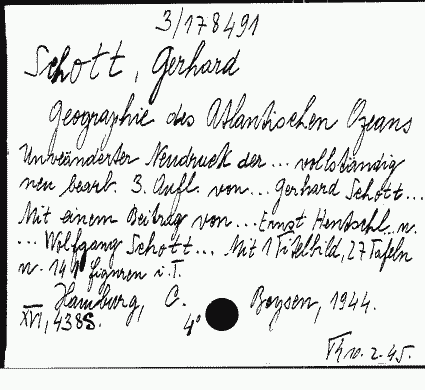 3/178491
Schott, Gerhard
Geographie des Atlantischen Ozeans
Unveänderter Neudruck der ... vollständig
neu bearb. 3. Aufl. von ... Gerhard Schott ...
Mit einem Beitrag von ... Ernst Hentschl u.
... Wolfgang Schott ... Mit 1 Titelbild, 27 Tafeln
u. 141 figuren i. T.
Hamburg, C. Boysen, 1944.
XVI, 438 S. 4°
2. 45.